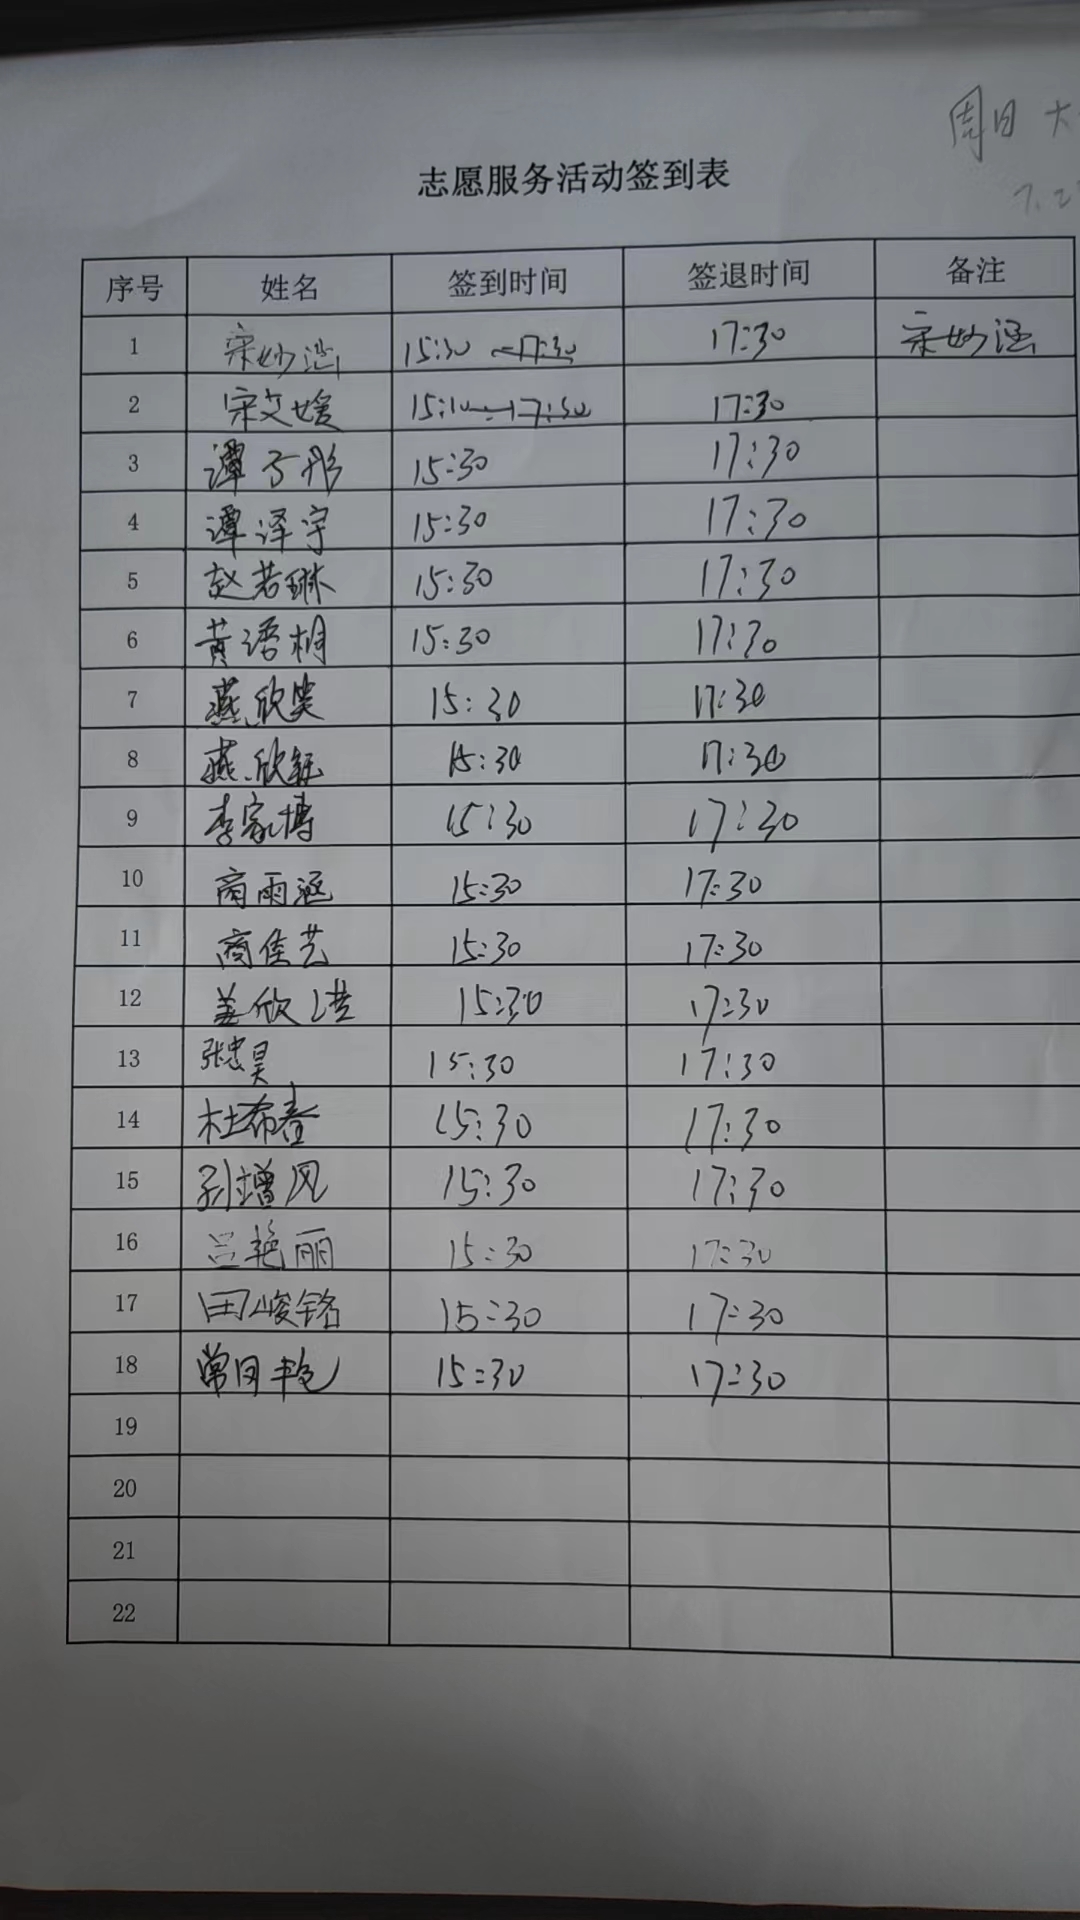 周日 大
7.2
志愿服务活动签到表
序号 姓名 签到时间 签退时间 备注
1 宋妙涵 15:30 ~17:30 17:30 宋妙涵
2 宋文媛 15:10~17:30 17:30
3 谭子彤 15:30 17:30
4 谭泽宇 15:30 17:30
5 赵若琳 15:30 17:30
6 黄语桐 15:30 17:30
7 燕欣昊 15:30 17:30
8 燕欣钰 15:30 17:30
9 李家博 15:30 17:30
10 商雨涵 15:30 17:30
11 商佳艺 15:30 17:30
12 姜欣 15:30 17:30
13 张忠昊 15:30 17:30
14 杜希春 15:30 17:30
15 增风 15:30 17:30
16 吕艳丽 15:30 17:30
17 田峻铭 15:30 17:30
18 15:30 17:30
19
20
21
22